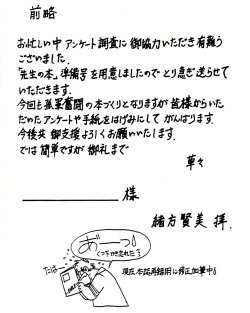 前略
お忙しい中アンケート調査に御協力いただき有難う
ございました。
「先生の本」準備号を用意しましたのでとり急ぎ送らせて
いただきます。
今回も孤軍奮闘の本づくりとなりますが皆様からいた
だいたアンケートや手紙をはげみにしてがんばります。
今後共御支援よろしくお願いいたします。
では簡単ですが御礼まで
草々
様
緒方賢美 拝.
あーっ!
現在本誌再録用に修正加筆中!